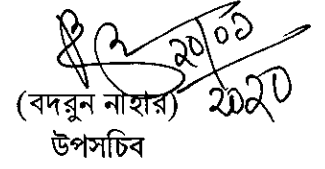 ২০/০১
২০২০
(বদরুন নাহার)
উপসচিব